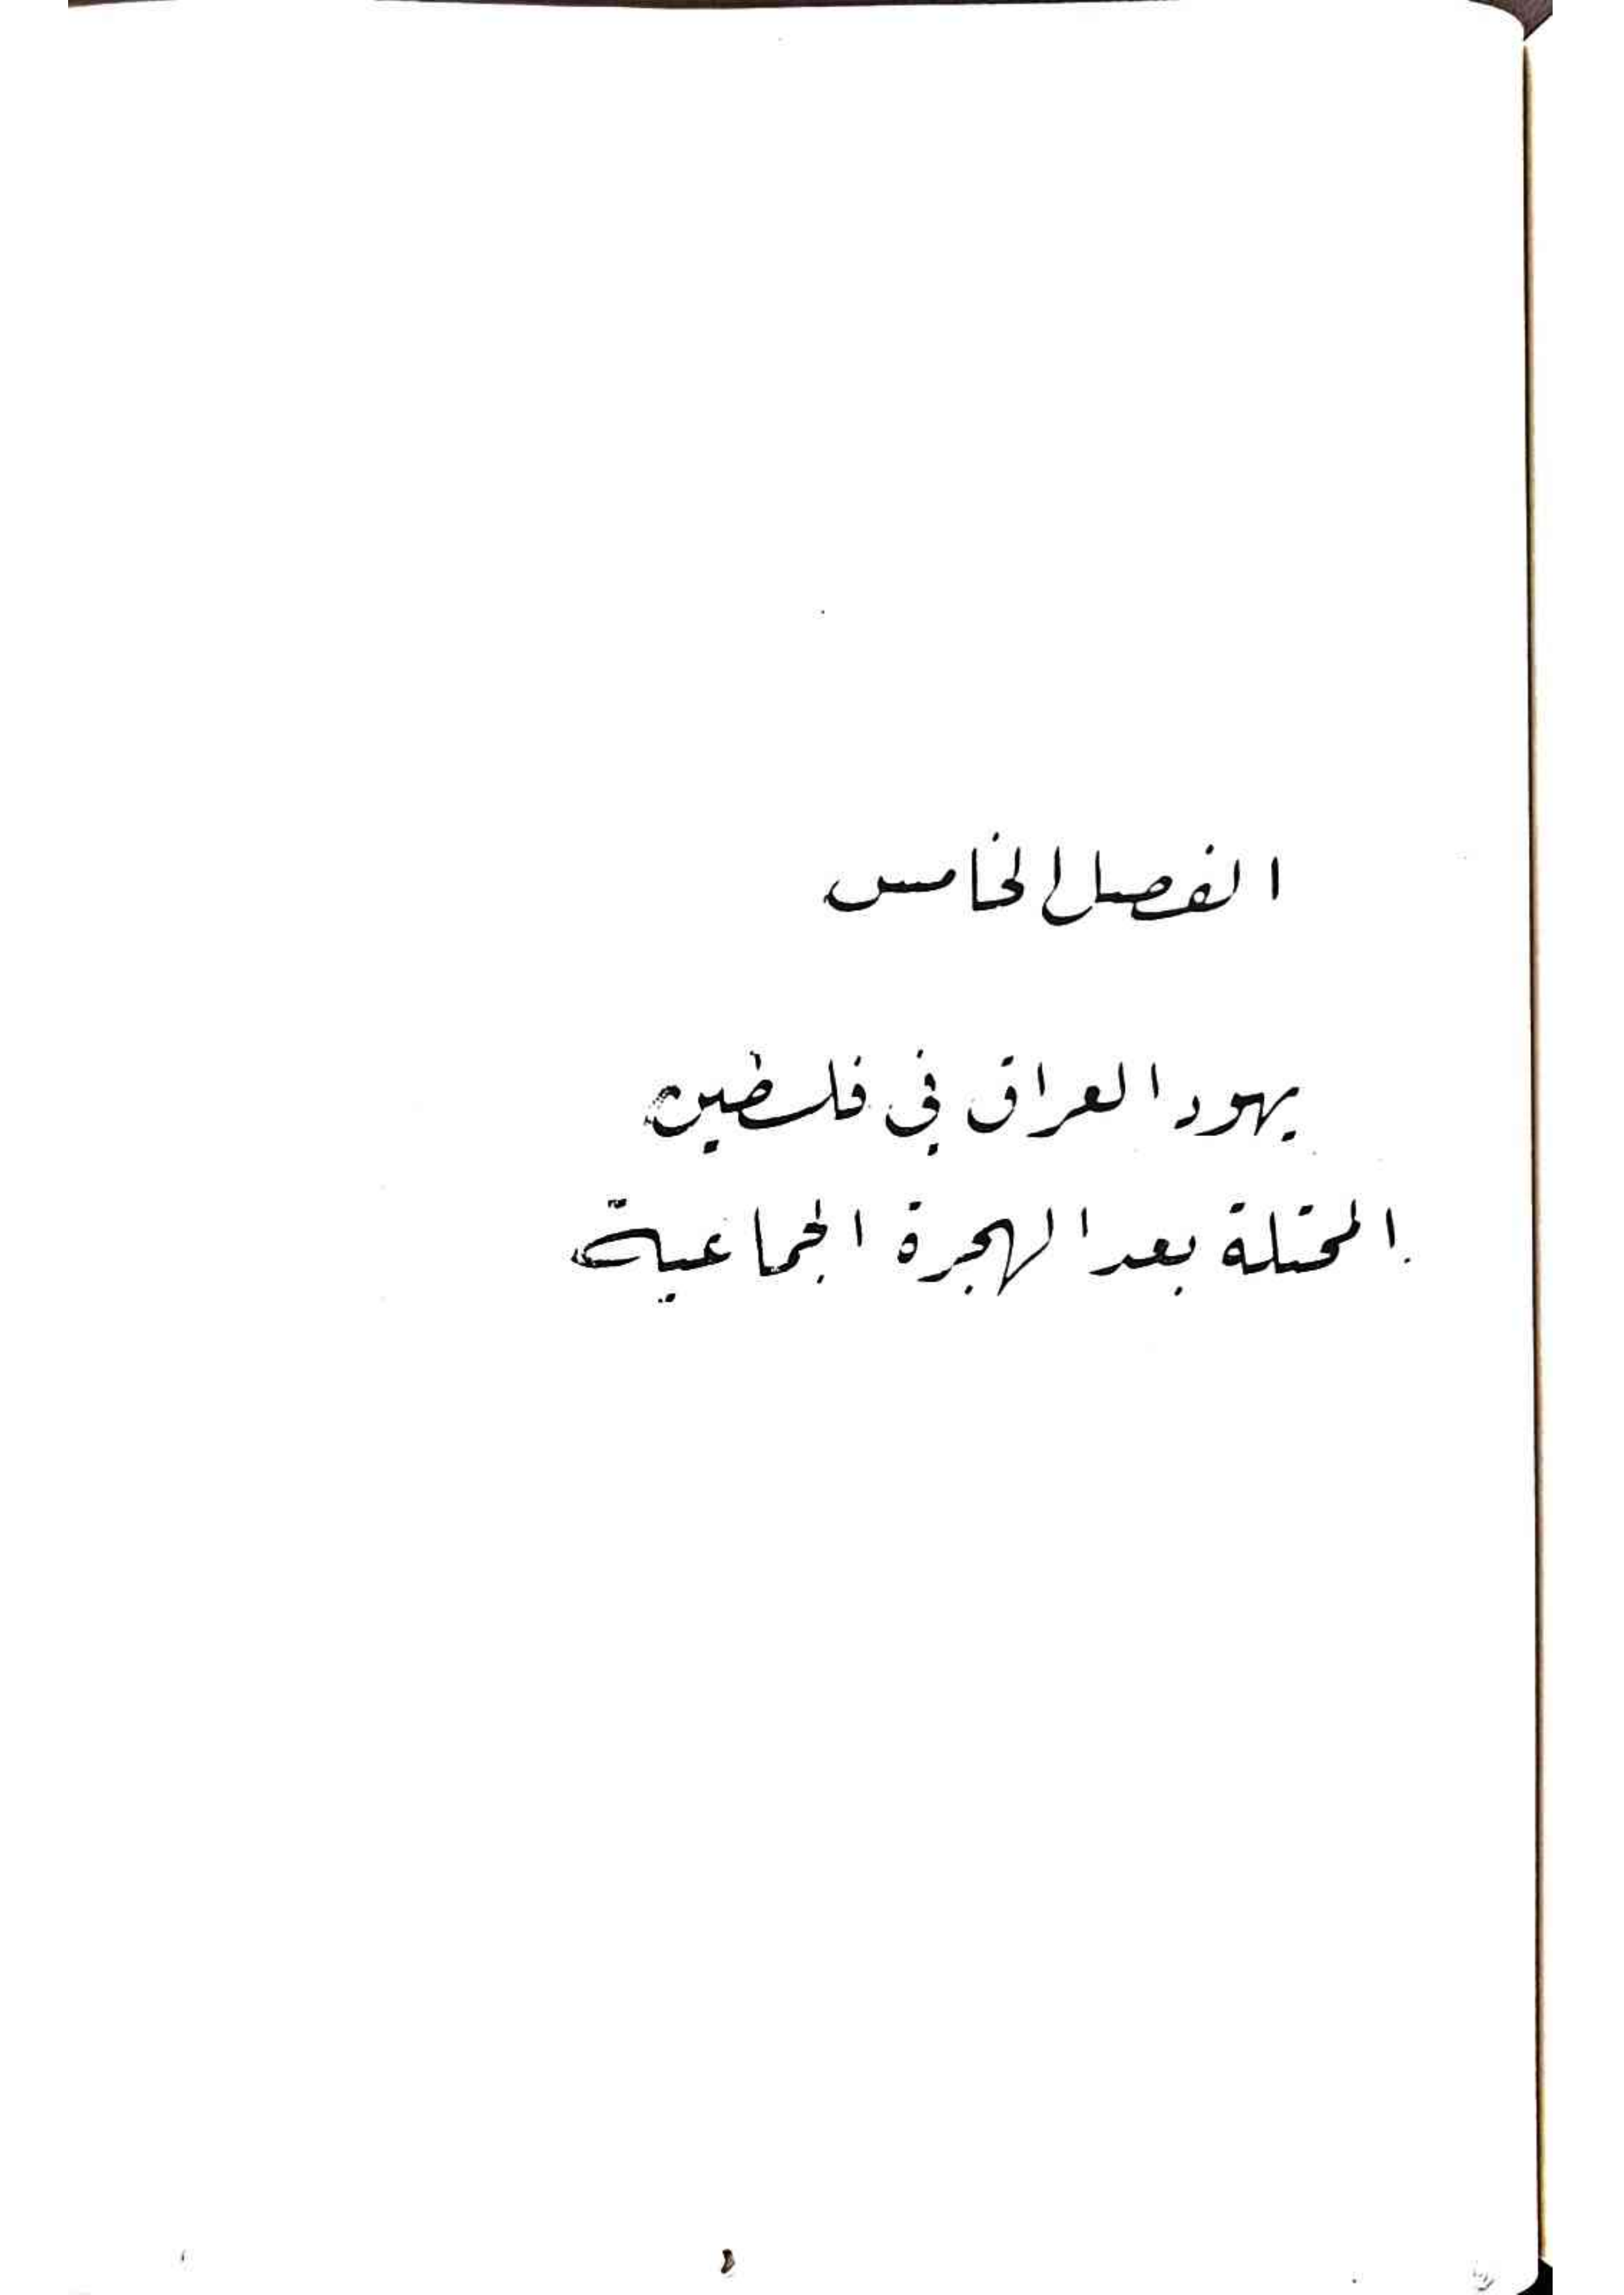 الفصل الخامس
يهود العراق في فلسطين
المحتلة بعد الهجرة الجماعية